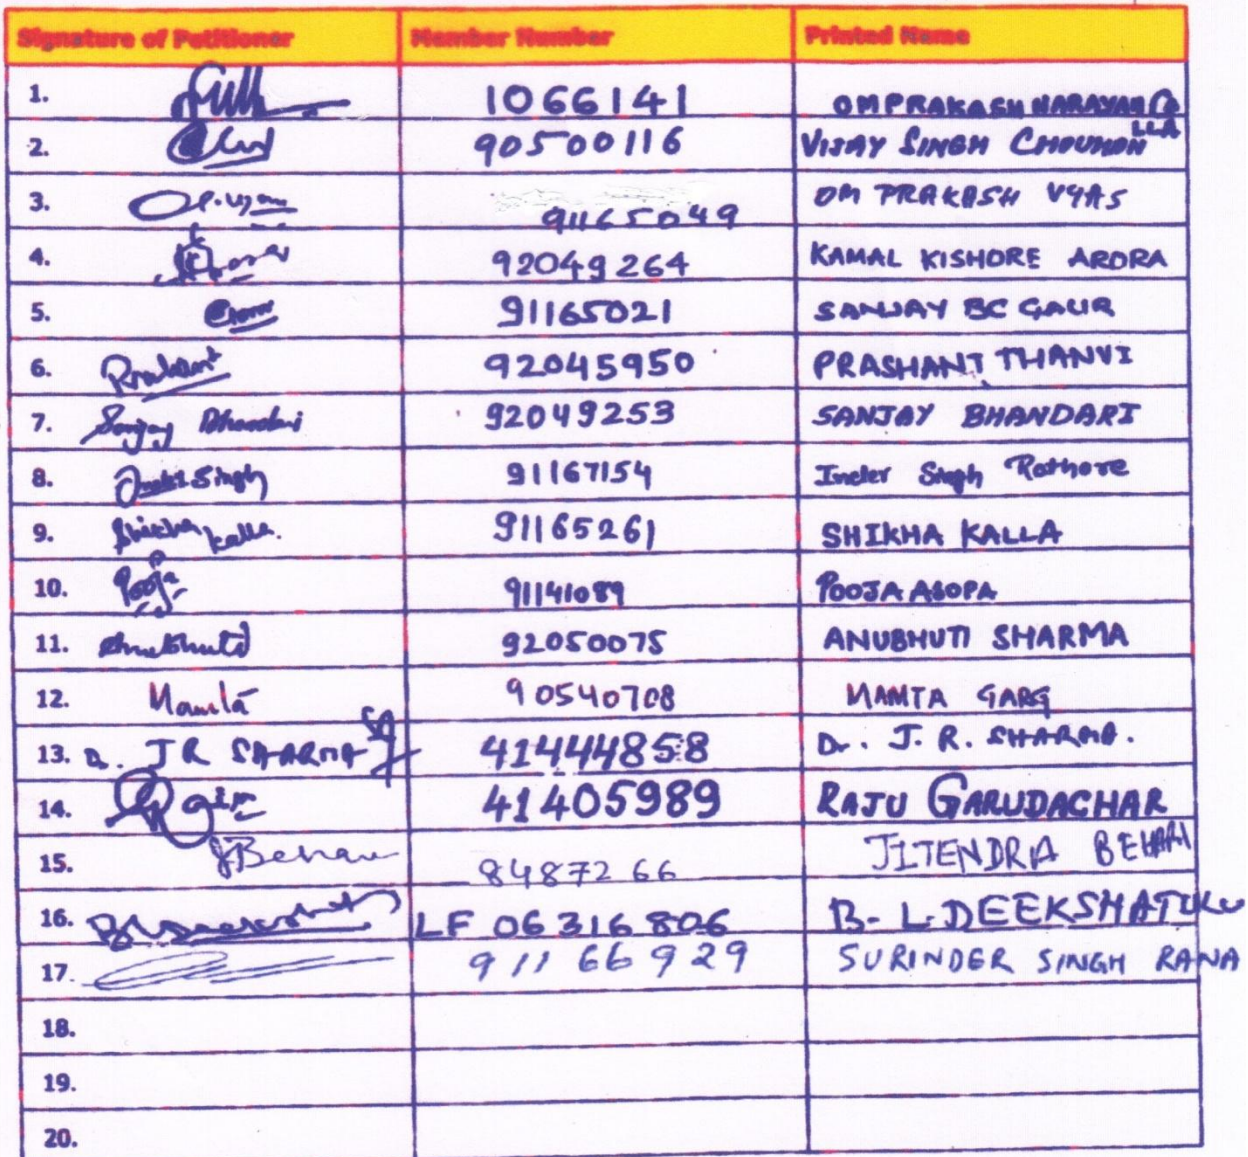 Signature of Petitioner Member Number Printed Name
1. 1066141 OMPRAKASH NARAYAN
2. 90500116 VIJAY SINGH CHOUHAN
3. O.P. Vyas 91165049 OM PRAKASH VYAS
4. 92049264 KAMAL KISHORE ARORA
5. 91165021 SANJAY BC GAUR
6. Prashant 92045950 PRASHANT THANVI
7. Sanjay Bhandari 92049253 SANJAY BHANDARI
8. Singh 91167154 Inder Singh Rathore
9. Shikha Kalla. 91165261 SHIKHA KALLA
10. Pooja 91141089 POOJA ASOPA
11. Anubhuti 92050075 ANUBHUTI SHARMA
12. Mamta 90540708 MAMTA GARG
13. D. J R SHARMA 41444858 Dr. J. R. SHARMA.
14. 41405989 RAJU GARUDACHAR
15. JBehari 8487266 JITENDRA BEHARI
16. LF 06316806 B. L. DEEKSHATULU
17. 91166929 SURINDER SINGH RANA
18.
19.
20.